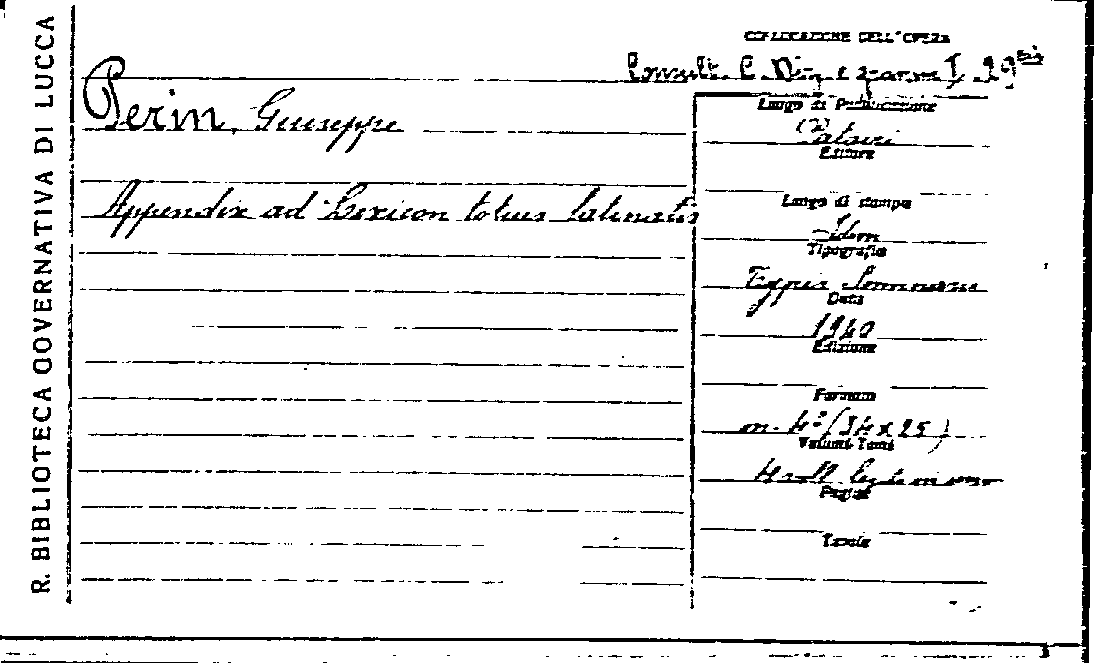 R. BIBLIOTECA GOVERNATIVA DI LUCCA
COLLOCAZIONE DELL'OPERA
Consult. C. Diz. e gramm. I, 29
Perin, Giuseppe
Appendix ad Lexicon totius latinatis
Luogo di Pubblicazione
Editore
Luogo di stampa
Idem
Tipografia
Typis
Data
1940
Edizione
Formato
in-4º (34x25)
Volumi-Tomi
Pagine
Tavole